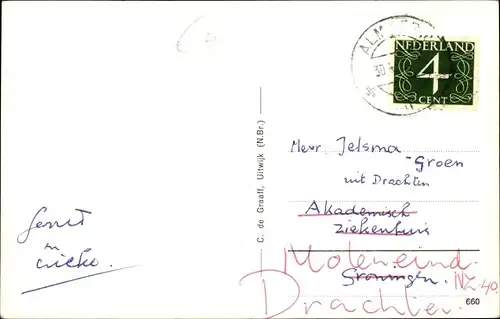 ALM
30
NEDERLAND
4
CENT
C. de Graaff, Uitwijk (N.Br.)
Mevr. Jelsma
-Groen
uit Drachten
Akademisch
Ziekenhuis
Groningen.
Moleneind
NZ 40.
Drachten.
en
660